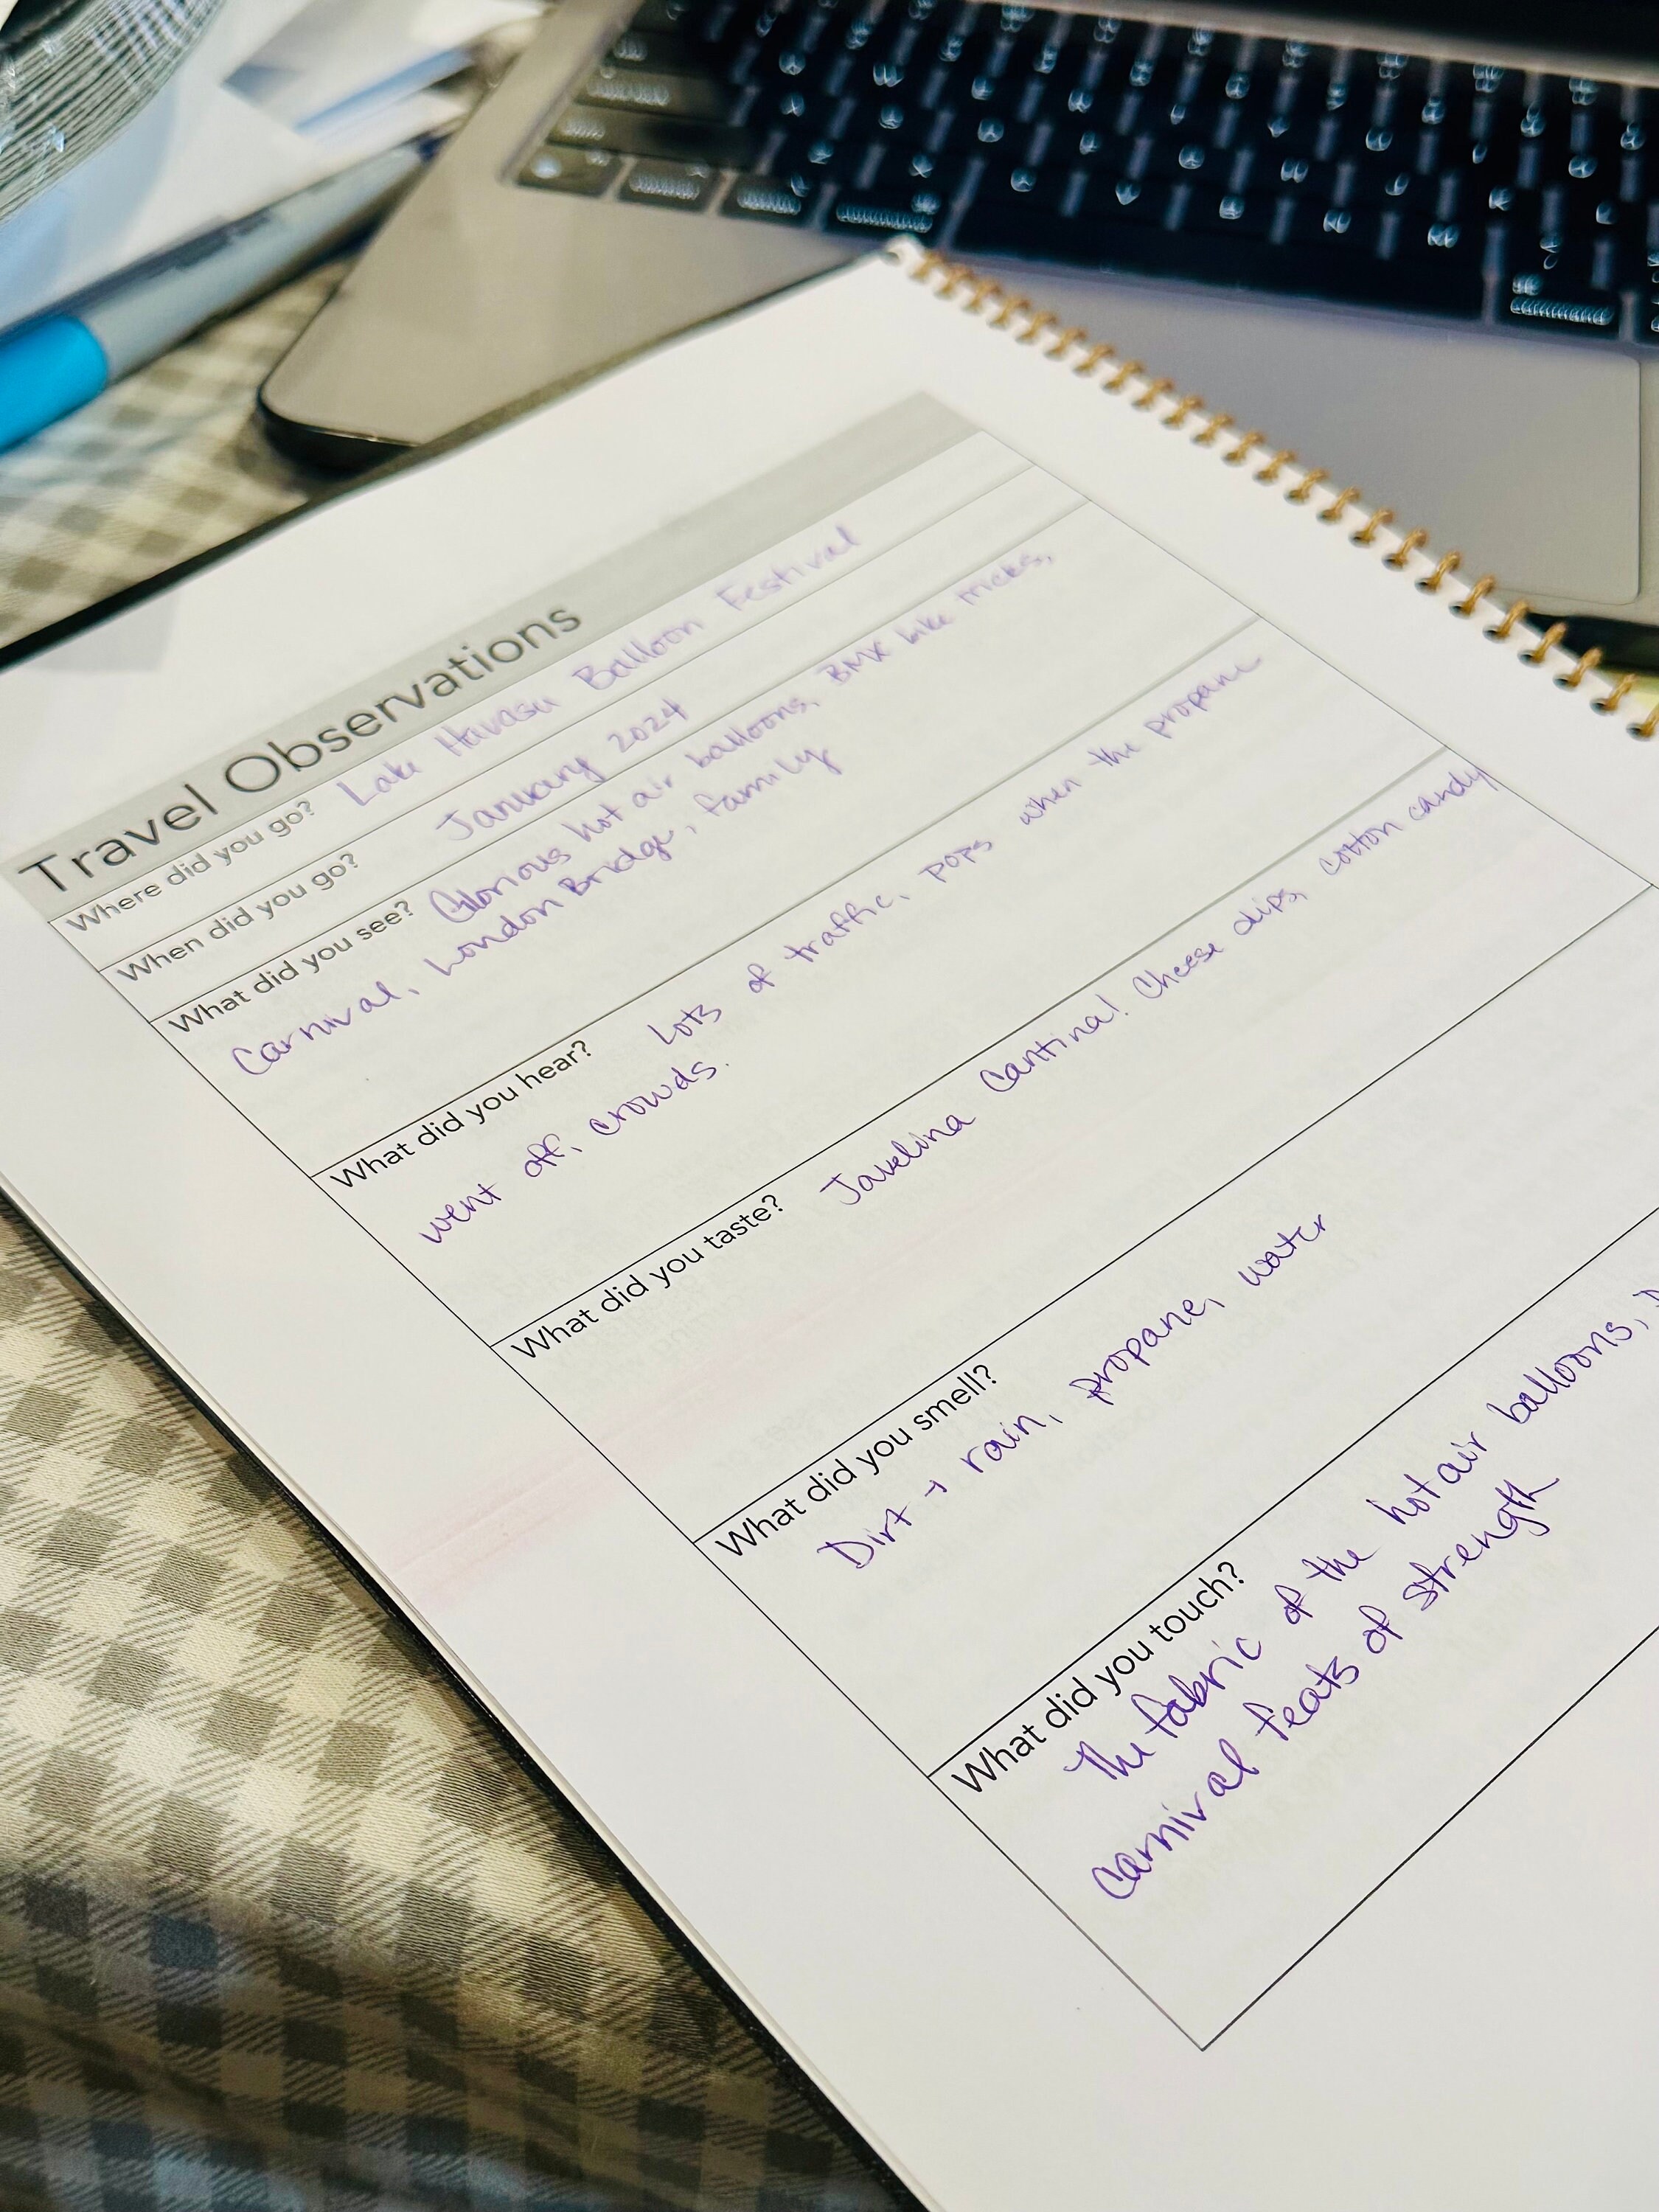 Travel Observations
Where did you go? Lake Havasu Balloon Festival
When did you go? January 2024
What did you see? Glorious hot air balloons, BMX bike tricks,
Carnival, London Bridge, family
What did you hear? Lots of traffic, pops when the propane
went off, crowds.
What did you taste? Javelina Cantina! Cheese dips, cotton candy
What did you smell?
Dirt → rain, propane, water
What did you touch?
The fabric of the hot air balloons,
carnival feats of strength